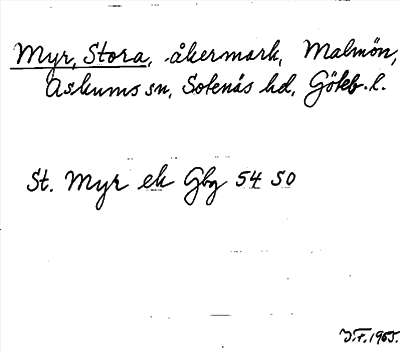 Myr, Stora, åkermark, Malmön,
Askums sn, Sotenäs hd, Göteb. l.
St. Myr ek Gbg 54 SO
J.F. 1965.